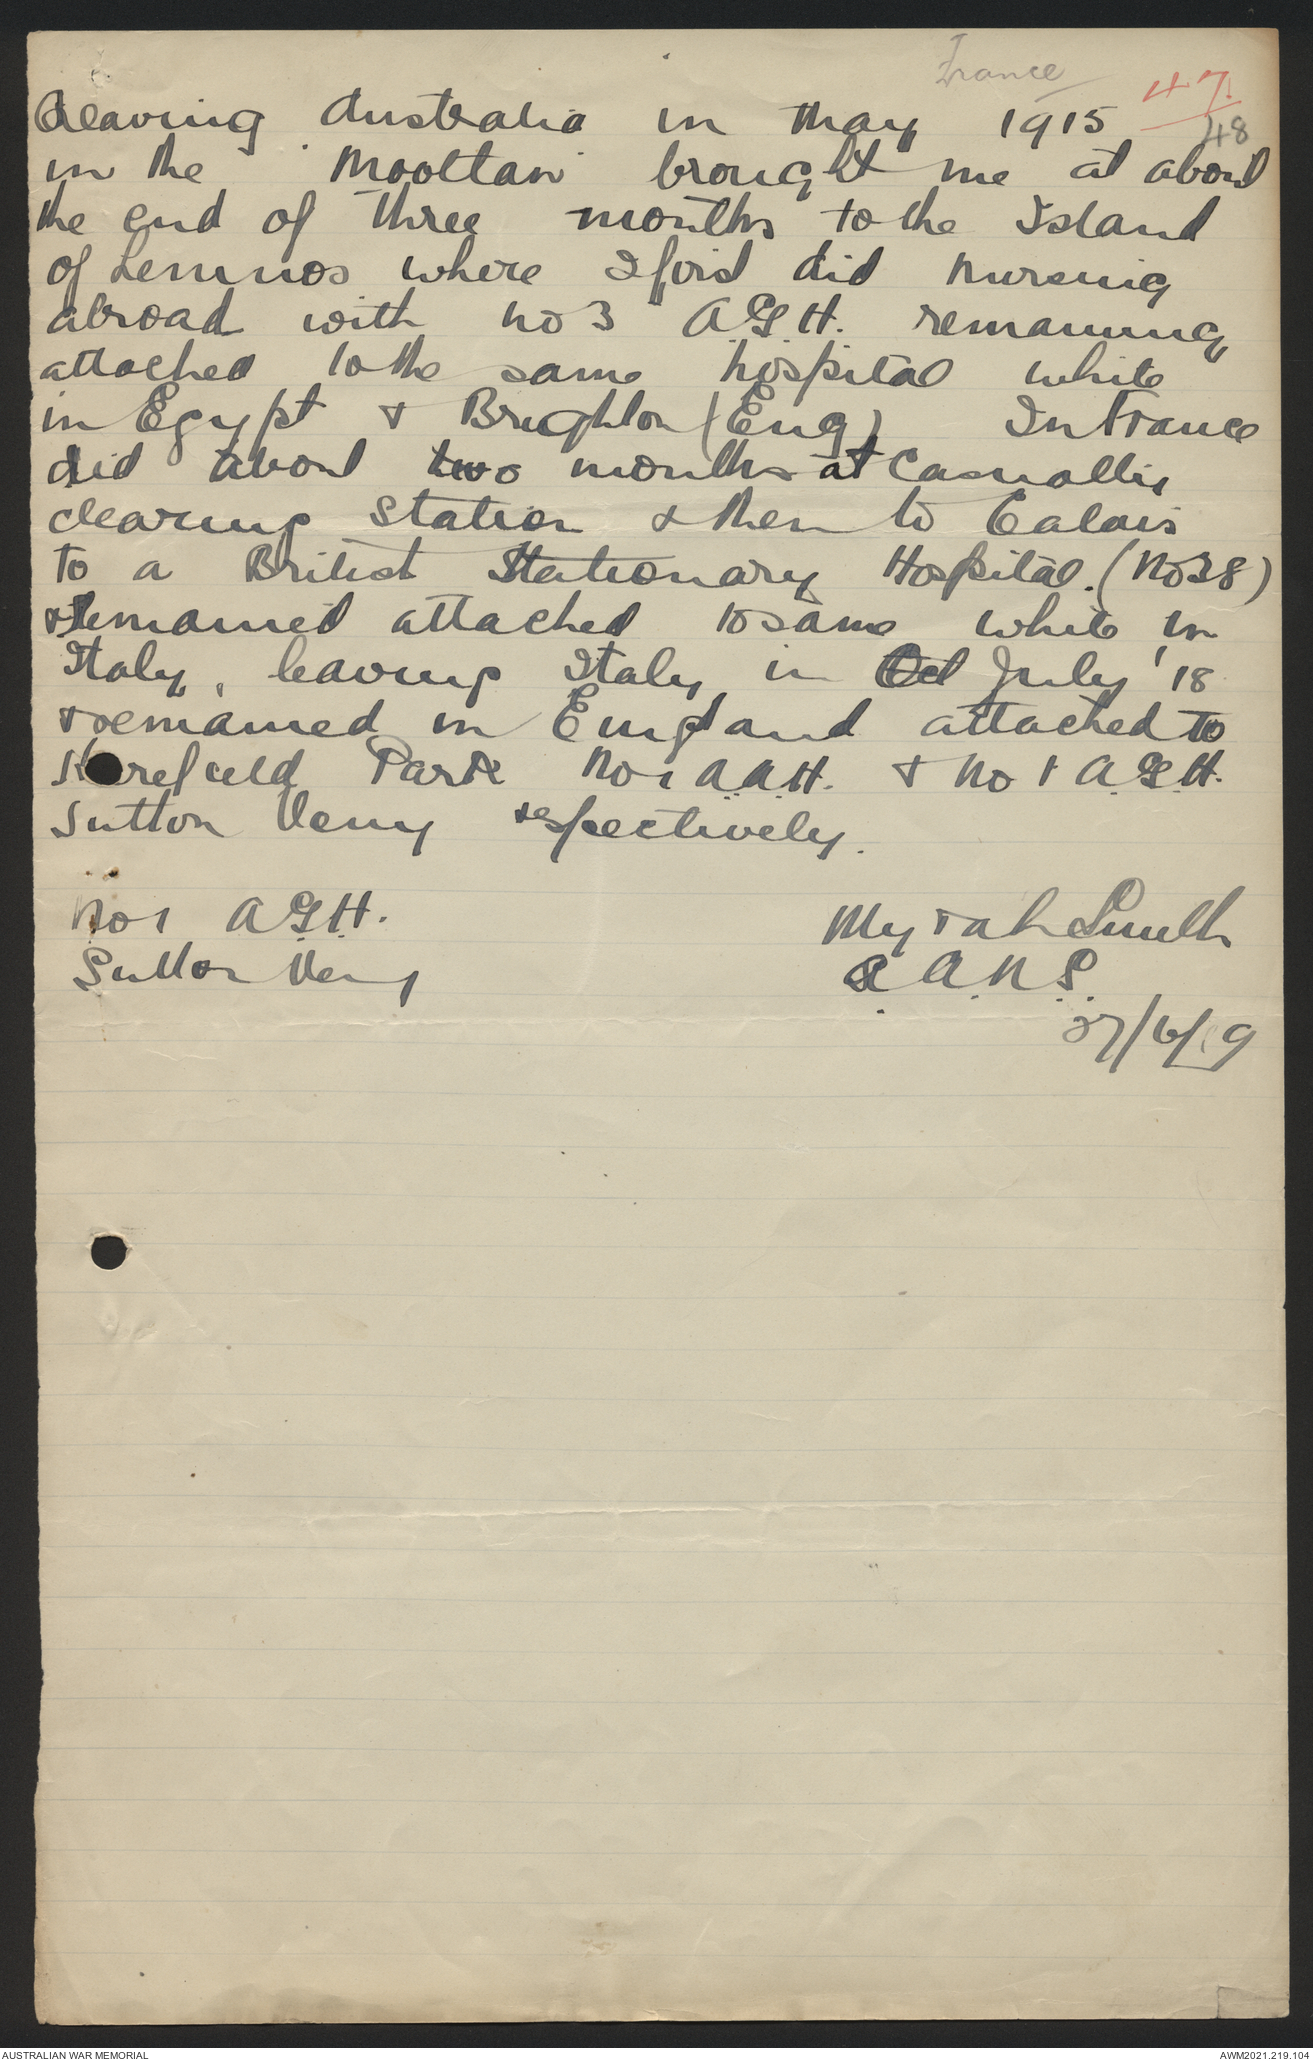 France
47.
48
Leaving Australia in May 1915
in the "Mooltan" brought me at about
the end of three months to the Island
of Lemnos where I first did nursing
abroad with No 3 A.G.H. remaining
attached to the same hospital while
in Egypt & Brighton (Eng) In France
did about two months at Casualty
clearing Station & then to Calais
to a British Stationary Hospital. (No 38)
& remained attached to same while in
Italy, leaving Italy in Oct July '18
& remained in England attached to
Harefield Park No 1 A.A.H. & No 1 A.G.H.
Sutton Veny respectively.
No 1 A.G.H.
Sutton Veny
Myrtah Smith
A.A.N.S.
27/6/19
AUSTRALIAN WAR MEMORIAL
AWM2021.219.104